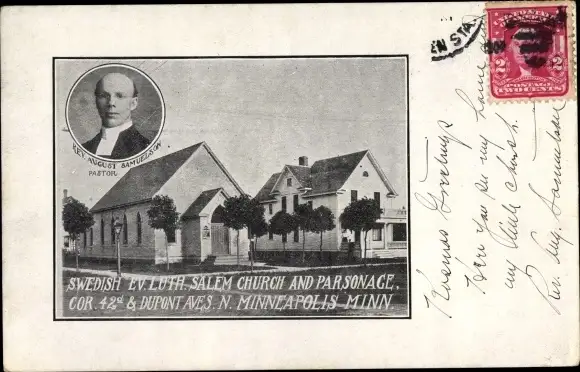 EN STA.
UNITED STATES
OF AMERICA
2 2
POSTAGE
TWO CENTS
REV. AUGUST SAMUELSON
PASTOR
SWEDISH EV. LUTH. SALEM CHURCH AND PARSONAGE,
COR. 42d & DUPONT AVES. N. MINNEAPOLIS MINN.
Greetings
Here you see my home
my little church.
Rev. Aug. Samuelson